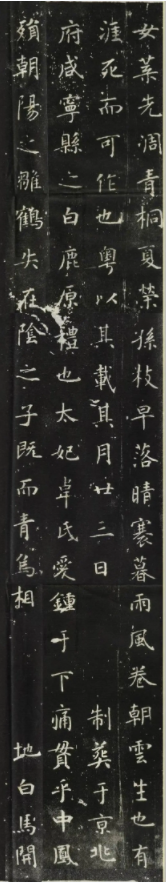 女萎先凋青桐夏榮孫枝早落晴褰暮雨風卷朝雲生也有
涯死而可作也粵以其載其月廿三日　制葬于京兆
府咸寧縣之白鹿原禮也太妃卓氏愛鍾于下痛貫乎中鳳
殞朝陽之雛鶴失在陰之子既而青烏相　地白馬開